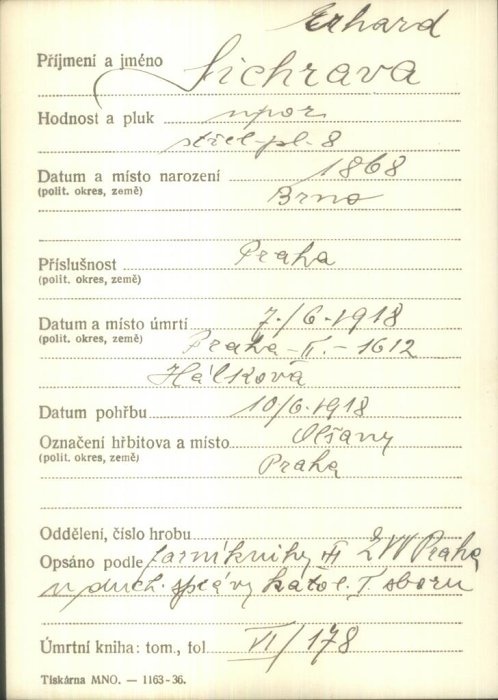 Erhard
Příjmení a jméno Sichrava
Hodnost a pluk npor.
střel. pl. 8
Datum a místo narození 1868
(polit. okres, země) Brno
Příslušnost Praha
(polit. okres, země)
Datum a místo úmrtí 7./6. 1918
(polit. okres, země) Praha - II. - 1612
Hálkova
Datum pohřbu 10/6. 1918
Označení hřbitova a místo Olšany
(polit. okres, země) Praha
Oddělení, číslo hrobu
Opsáno podle farní knihy ZVV Praha
duch. správy katol. I. sboru
Úmrtní kniha: tom., fol. VI/178
Tiskárna MNO. — 1163-36.